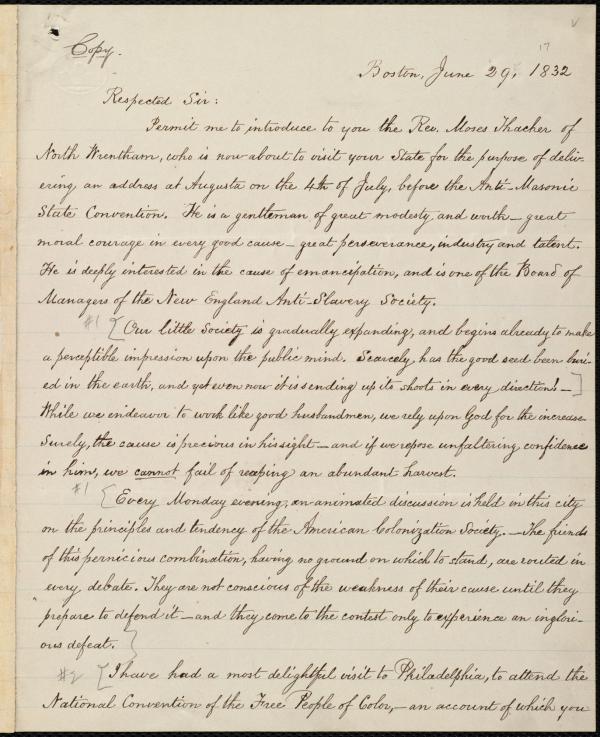 Copy.
17
Boston, June 29, 1832
Respected Sir:
Permit me to introduce to you the Rev. Moses Thacher of
North Wrentham, who is now about to visit your State for the purpose of deliv-
ering an address at Augusta on the 4th of July, before the Anti-Masonic
State Convention. He is a gentleman of great modesty and worth – great
moral courage in every good cause – great perseverance, industry and talent.
He is deeply interested in the cause of emancipation, and is one of the Board of
Managers of the New England Anti-Slavery Society.
#1 { Our little Society is gradually expanding, and begins already to make
a perceptible impression upon the public mind. Scarcely has the good seed been buri-
ed in the earth, and yet even now it is sending up its shoots in every direction! – ]
While we endeavor to work like good husbandmen, we rely upon God for the increase.
Surely, the cause is precious in his sight – and if we repose unfaltering confidence
in him, we cannot fail of reaping an abundant harvest.
#1 { Every Monday evening, an animated discussion is held in this city
on the principles and tendency of the American Colonization Society. – The friends
of this pernicious combination, having no ground on which to stand, are routed in
every debate. They are not conscious of the weakness of their cause until they
prepare to defend it – and they come to the contest only to experience an inglori-
ous defeat. }
#2 { I have had a most delightful visit to Philadelphia, to attend the
National Convention of the Free People of Color, – an account of which you